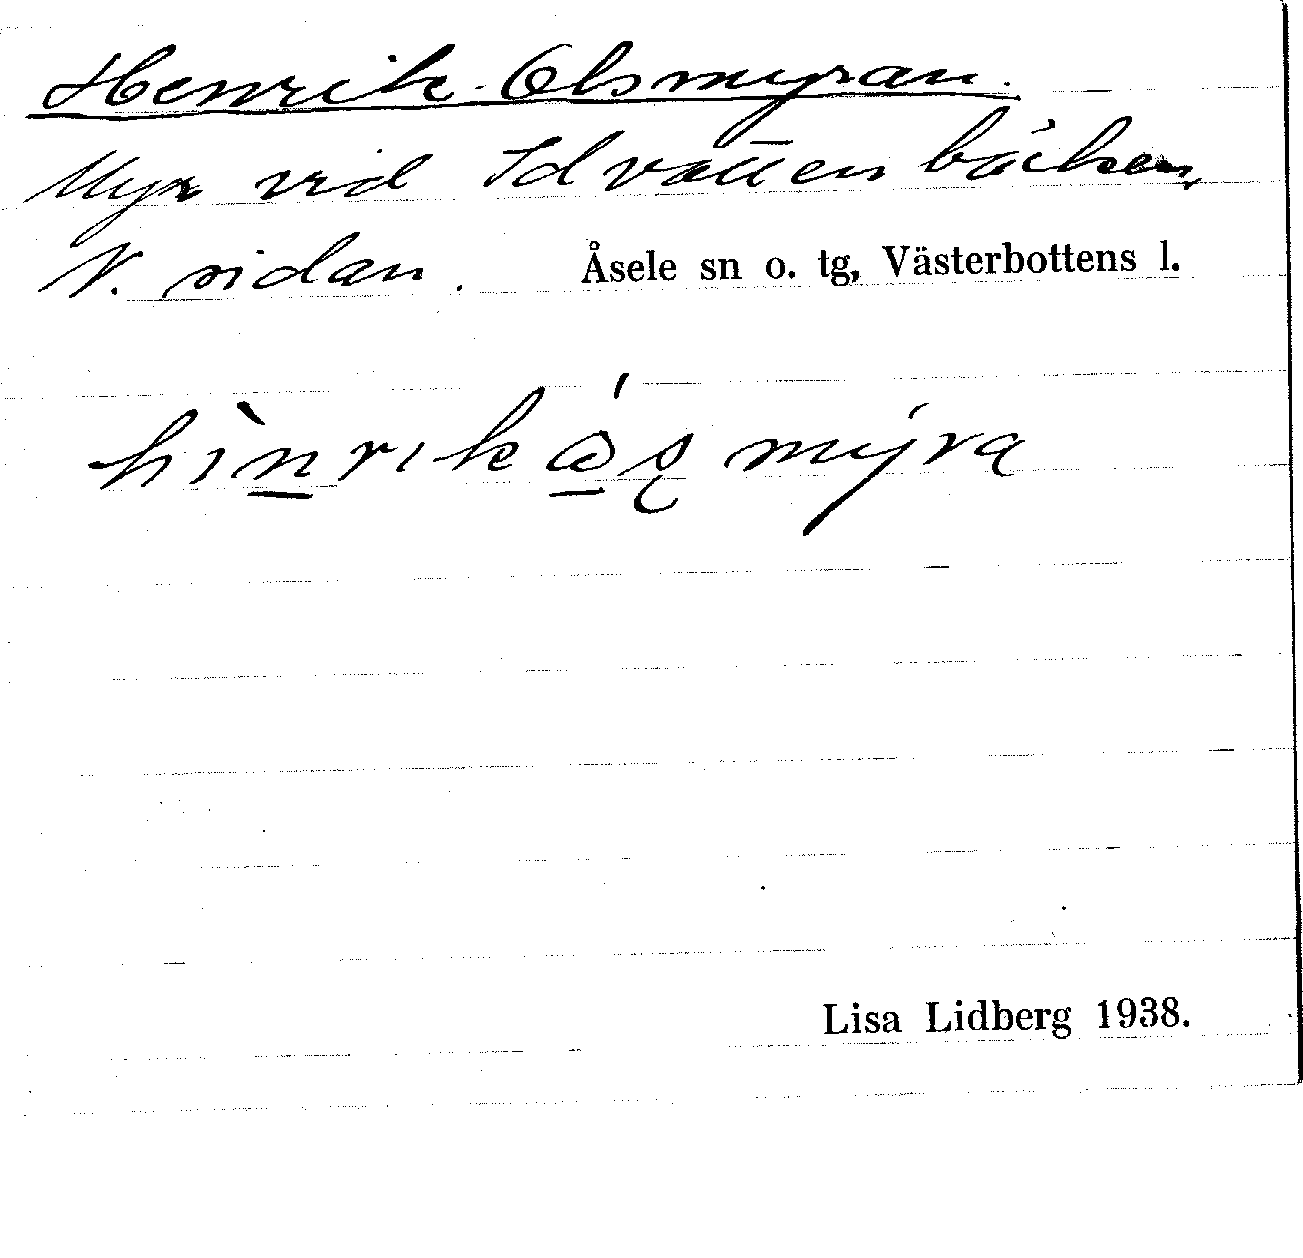 Henrik-Olsmyran.
Myr vid Idvattenbäcken,
V. sidan. Åsele sn o. tg, Västerbottens l.
hìnrik myra
Lisa Lidberg 1938.